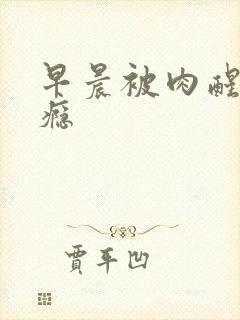 早晨被肉醒
瘾
贾平凹